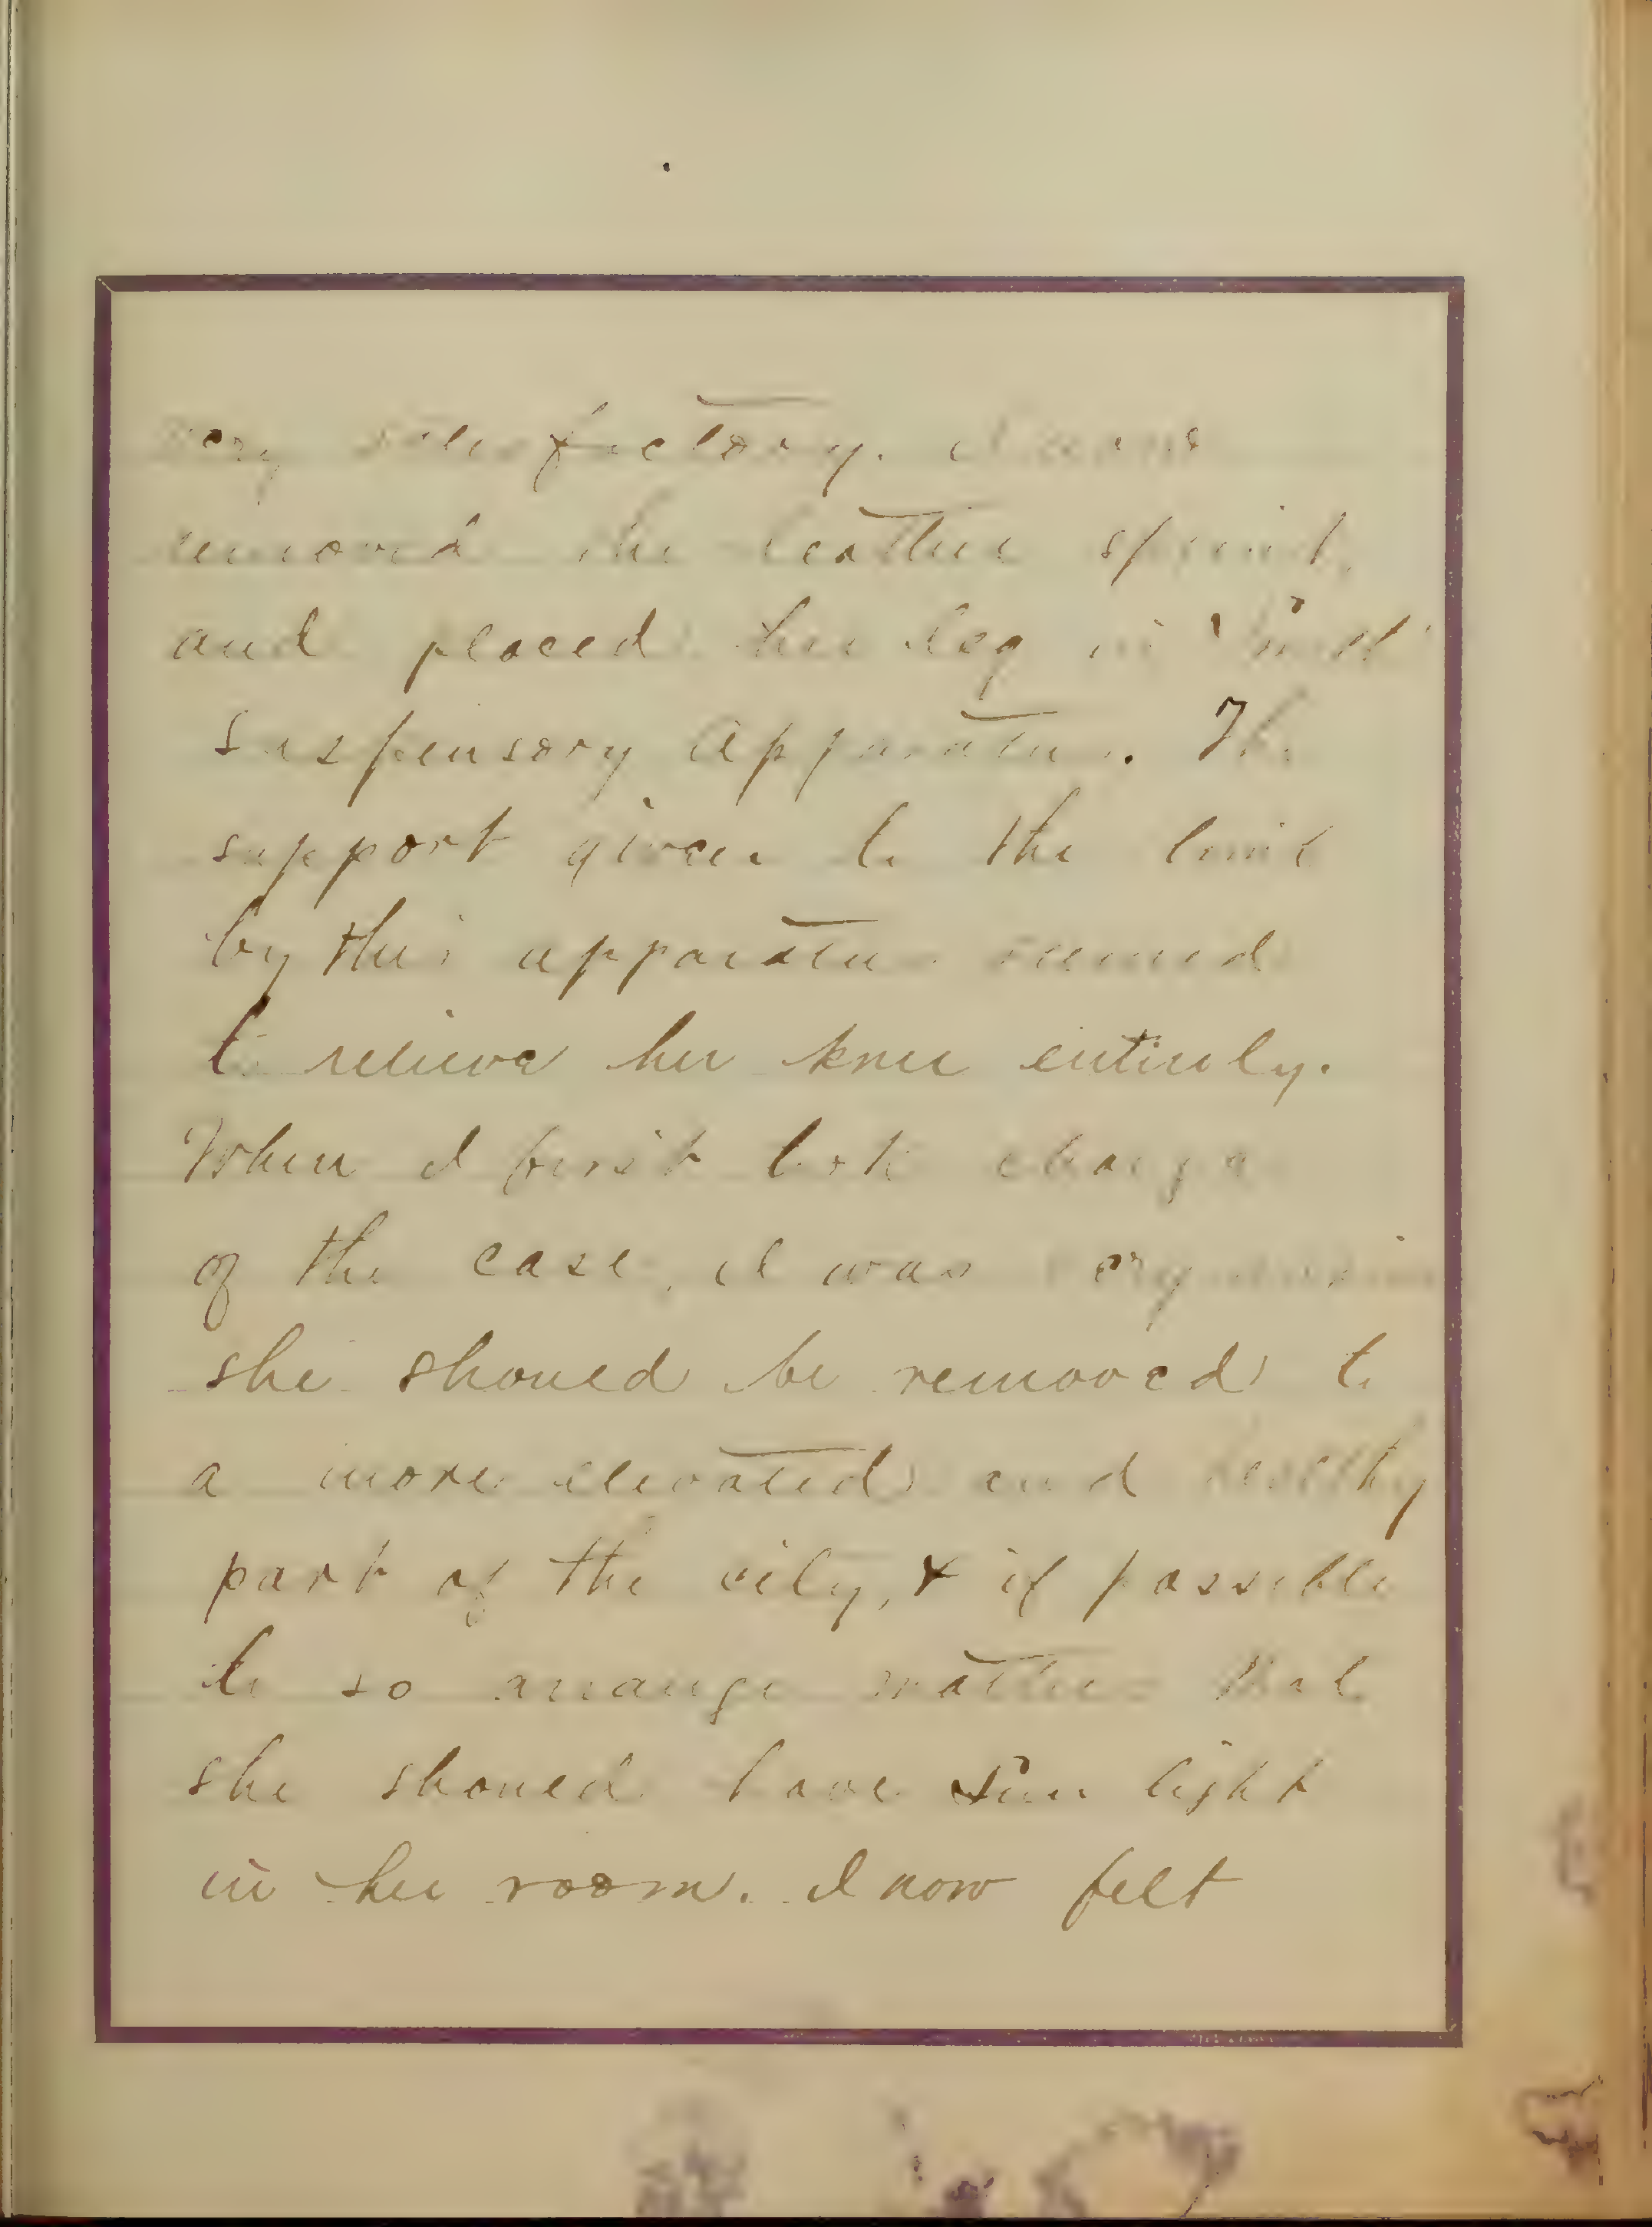 very satisfactory. I
removed the leather splint,
and placed her leg in
suspensory apparatus. The
support given to the limb
by this apparatus seemed
to relieve her knee entirely.
When I first took charge
of the case, I was very anxious
she should be removed to
a more elevated and healthy
part of the city, & if possible
to so arrange matters that
she should have sun light
in her room. I now felt